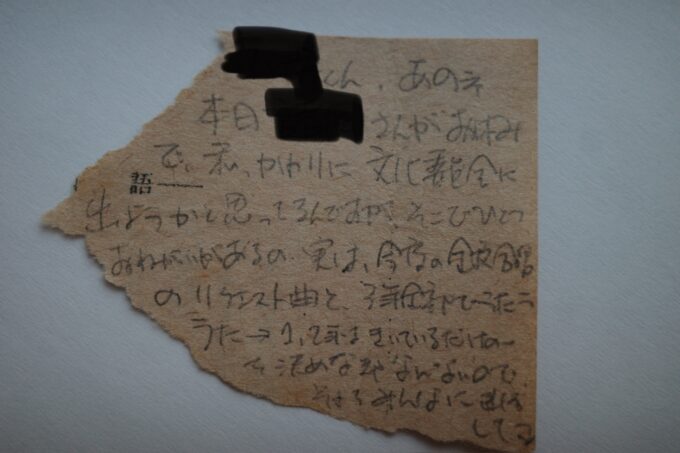 くん、あのネ
本日 さんがお休み
で、私、かわりに文化委員会に
語
出ようかと思ってるんですが、そこでひとつ
おねがいがあるの。実は、今度の全校合唱
のリクエスト曲と、3年全部でうたう
うた→1,2年はきいているだけ
決めなきゃなんないので
みんなに
してネ